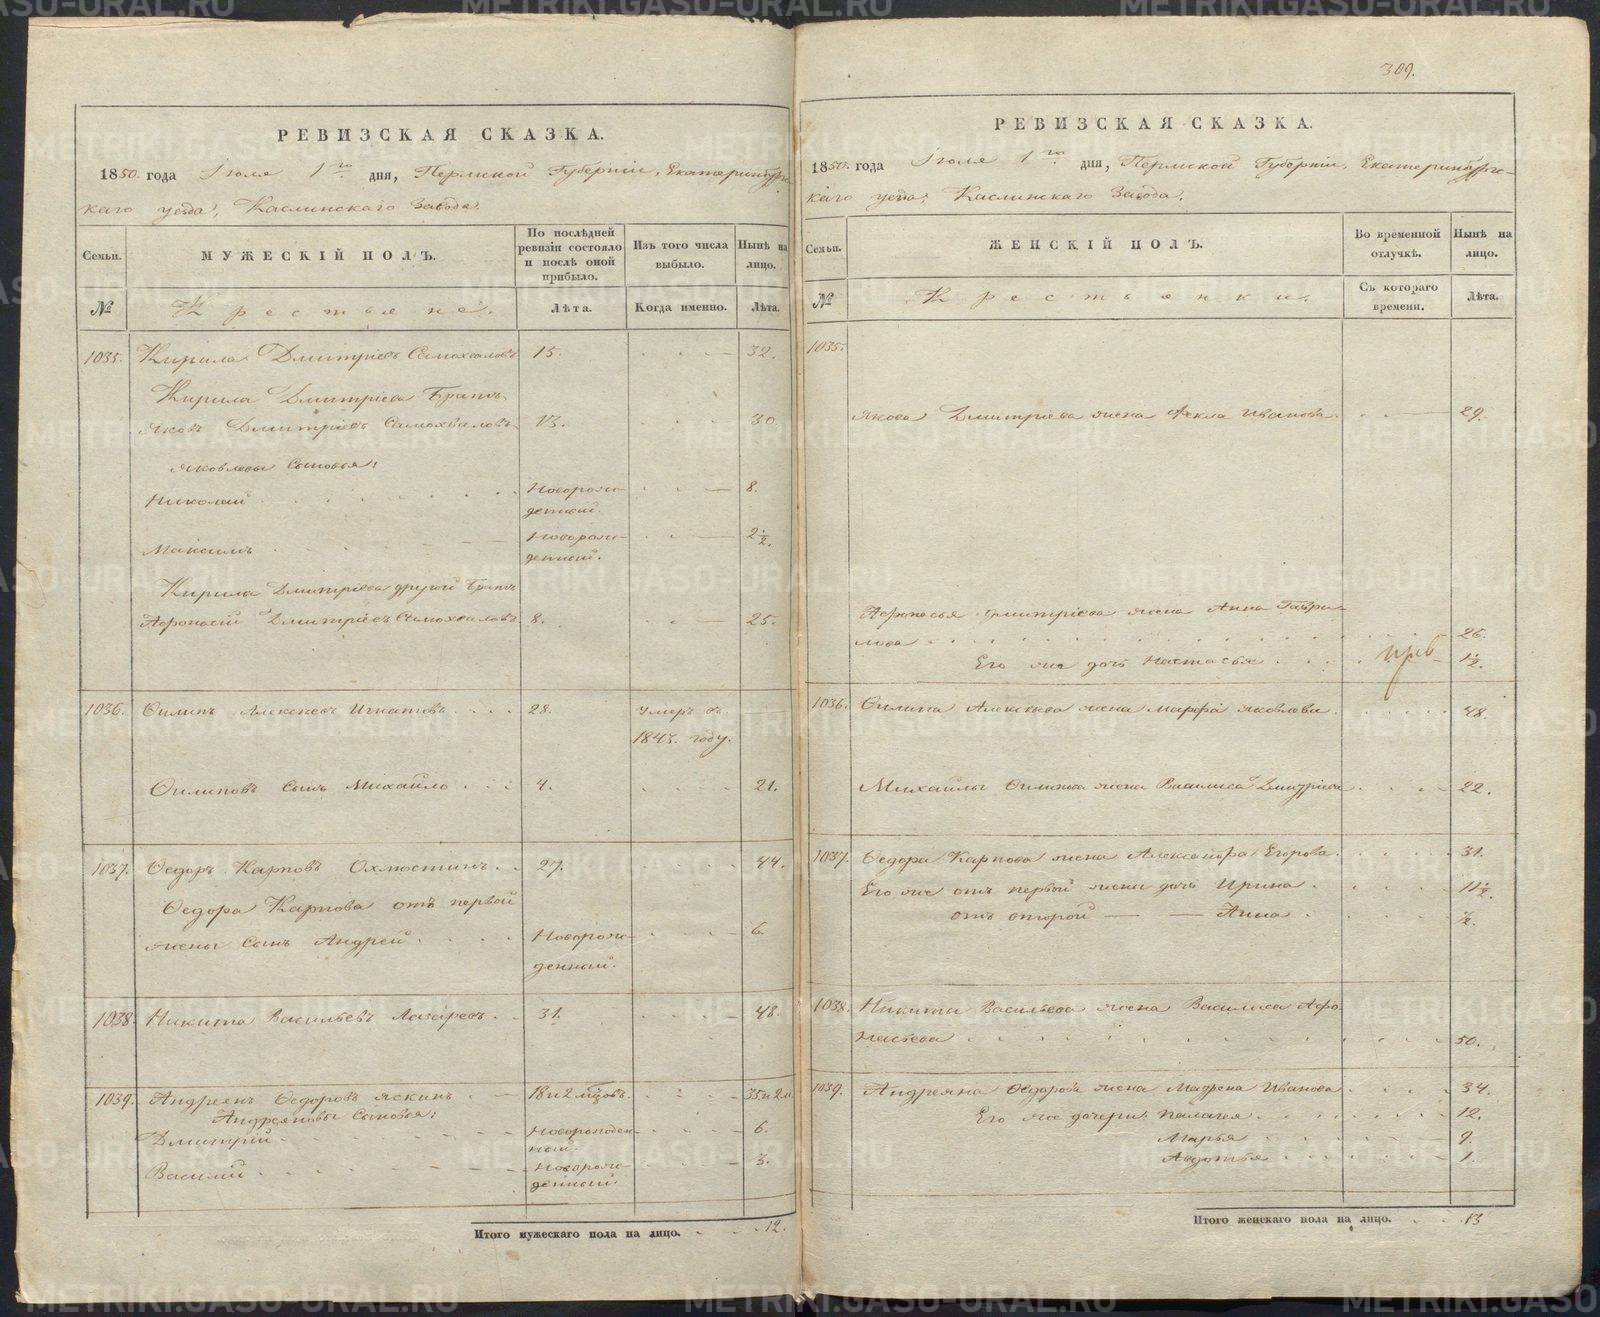 309.
РЕВИЗСКАЯ СКАЗКА.
1850. года Іюля 1го дня, Пермской Губерніи, Екатеринбургс-
каго уезда, Каслинскаго Завода.
Семьи.
МУЖЕСКІЙ ПОЛЪ.
По послѣдней ревизіи состояло и послѣ оной прибыло.
Изъ того числа выбыло.
Нынѣ на лицо.
№
Крестьяне.
Лѣта.
Когда именно.
Лѣта.
1035. Кирила Дмитріевъ Самохваловъ 15. 32.
Кирила Дмитріева Братъ
Яковъ Дмитріевъ Самохваловъ 13. 30.
Яковлевы Сыновья:
Николай Новорож- 8.
денный.
Максимъ Новорож- 2 1/2.
денный.
Кирила Дмитріева другой Братъ
Афонасій Дмитріевъ Самохваловъ 8. 25.
1036. Филипъ Алексеевъ Игнатовъ 28. умеръ въ
1843. году.
Филиповъ сынъ Михайло 4. 21.
1037. Федоръ Карповъ Охлюстинъ 27. 44.
Федора Карпова отъ первой
жены сынъ Андрей Новорож- 6.
денный.
1038. Никита Васильевъ Лазаревъ 31. 48.
1039. Андреянъ Федоровъ Яскинъ 18 и 2 мцовъ. 35 и 2 м
Андреяновы Сыновья:
Дмитрій Новорожден- 6.
ный.
Василий Новорож- 3.
денный
Итого мужескаго пола на лицо. 12.
РЕВИЗСКАЯ СКАЗКА.
1850. года Іюля 1го дня, Пермской Губерніи, Екатеринбургс-
каго уезда, Каслинскаго Завода.
Семьи.
ЖЕНСКІЙ ПОЛЪ.
Во временной отлучкѣ.
Нынѣ на лицо.
№
Крестьянки.
Съ котораго времени.
Лѣта.
1035.
Якова Дмитріева жена Фекла Иванова 29.
Афонасья Дмитріева жена Анна Гаври-
лова 26.
Его же дочь Настасья 1 1/2.
1036. Филипа Алексеева жена Марфа Яковлева 48.
Михайлы Филипова жена Василиса Дмитріева 22.
1037. Федора Карпова жена Александра Егорова 31.
Его же отъ первой жены дочь Ирина 11 1/2.
отъ второй — — Анна 1/2.
1038. Никиты Васильева жена Василиса Афо
насьева 50.
1039. Андреяна Федорова жена Матрена Иванова 34.
Его же дочери: Палагея 12.
Марья 9.
Авдотья 1.
Итого женскаго пола на лицо. 13
METRIKI.GASO-URAL.RU